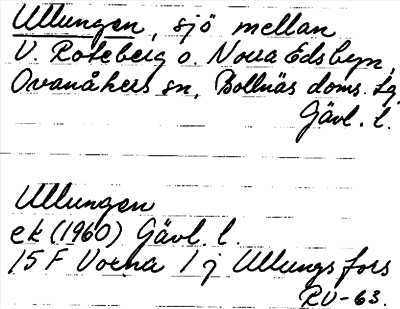 Ullungen, sjö mellan
V. Roteberg o. Norra Edsbyn,
Ovanåkers sn, Bollnäs doms. lg
Gävl. l.
Ullungen
ek (1960) Gävl. l.
15 F Voxna 1 j Ullungsfors
RV-63.